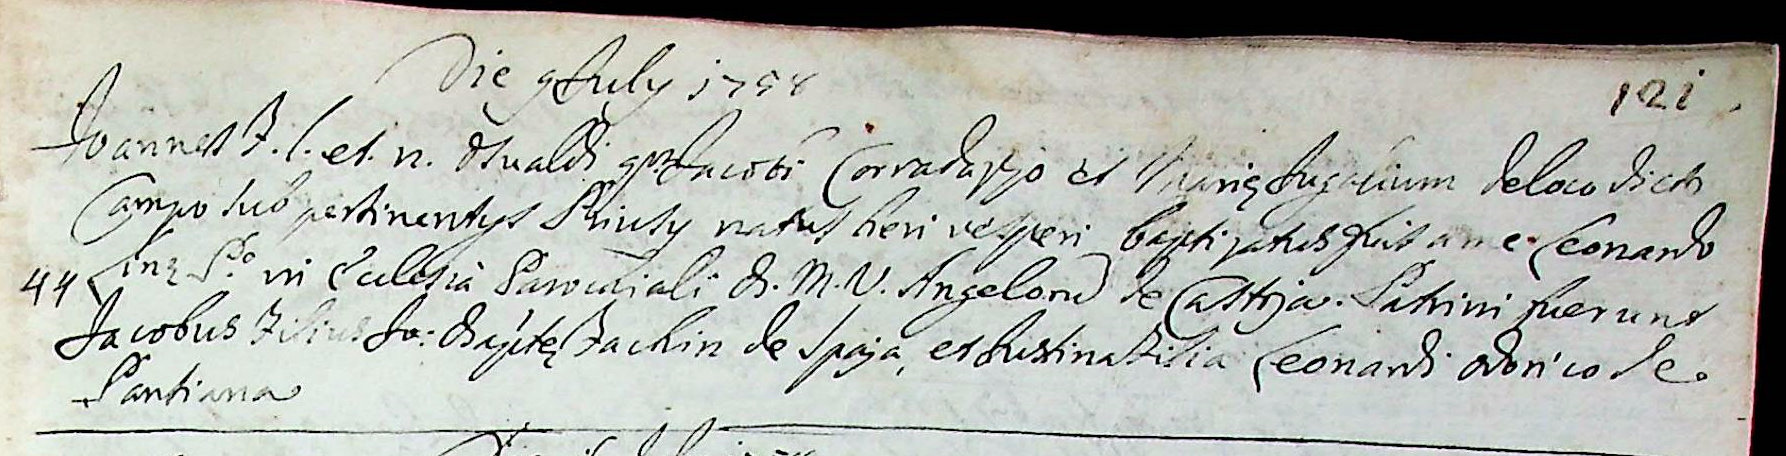 Die 9 July 1758
121
Joannes F. l. et. n. Osualdi qm Jacobi Corradazzo et Marię Jugalium de loco dicto
Campo sub pertinentijs Priusy natus heri vesperi baptizatus fuit a me Leonardo
44 in Ecclesia Parochiali B. M. V. Angeloru de Castoja. Patrini fuerunt
Jacobus Filius Jo: Baptę Fachin de Spęsa, et Justina Filia Leonardi Odorico de